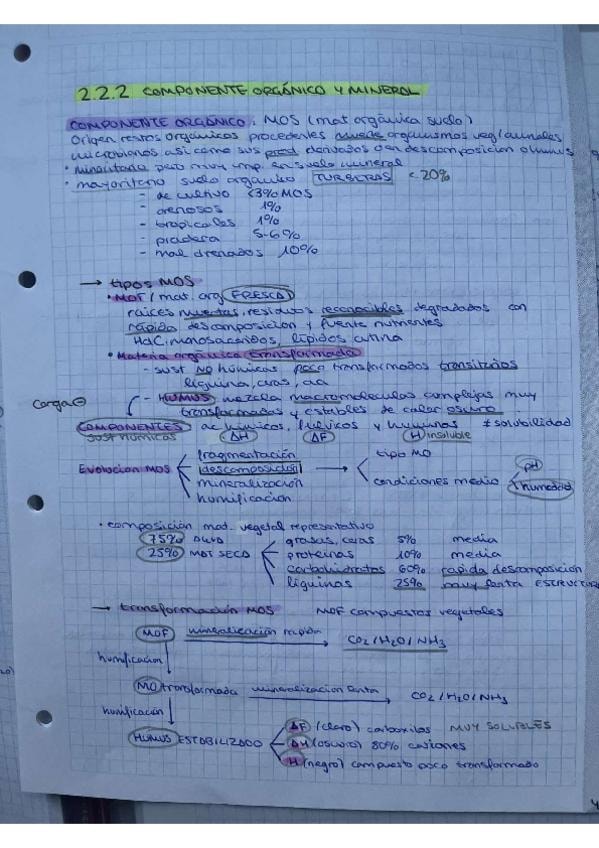 2.2.2 COMPONENTE ORGÁNICO Y MINERAL
COMPONENTE ORGÁNICO: MOS (mat orgánica suelo)
Origen restos orgánicos procedentes muerte organismos veg/animales
microbianos así como sus prod derivados d en descomposición o humus
• minoritario pero muy imp. en suelo mineral
• mayoritario suelo orgánico TURBERAS < 20%
- de cultivo <3% MOS
- arenosos 1%
- tropicales 1%
- pradera 5-6%
- mal drenados 10%
→ tipos MOS
• MOF (mat. org FRESCA)
raíces muertas, residuos reconocibles degradados con
rápida descomposición y fuente nutrientes
HdC, monosacáridos, lípidos cutina
• Materia orgánica transformada
- sust NO húmicas poco transformados transitorios
lignina, ceras, aa
Carga ⊖
- HUMUS mezcla macromoléculas complejas muy
transformadas y estables de color oscuro
COMPONENTES ac húmicos, fúlvicos y huminas ≠ solubilidad
sust húmicas AH AF H insoluble
Evolución MOS
fragmentación
descomposición
mineralización
humificación
tipo MO
condiciones medio
pH
humedad
• composición mat. vegetal representativo
75% agua
25% MAT SECA
grasas, ceras 5% media
proteínas 10% media
carbohidratos 60% rápida descomposición
ligninas 25% muy lenta ESTRUCTURA
→ transformación MOS MOF compuestos vegetales
MOF mineralización rápida CO2/H2O/NH3
humificación
MO transformada mineralización lenta CO2/H2O/NH3
humificación
HUMUS ESTABILIZADO
AF (claro) carboxilos MUY SOLUBLES
AH (oscuro) 80% cationes
H (negro) compuesto poco transformado